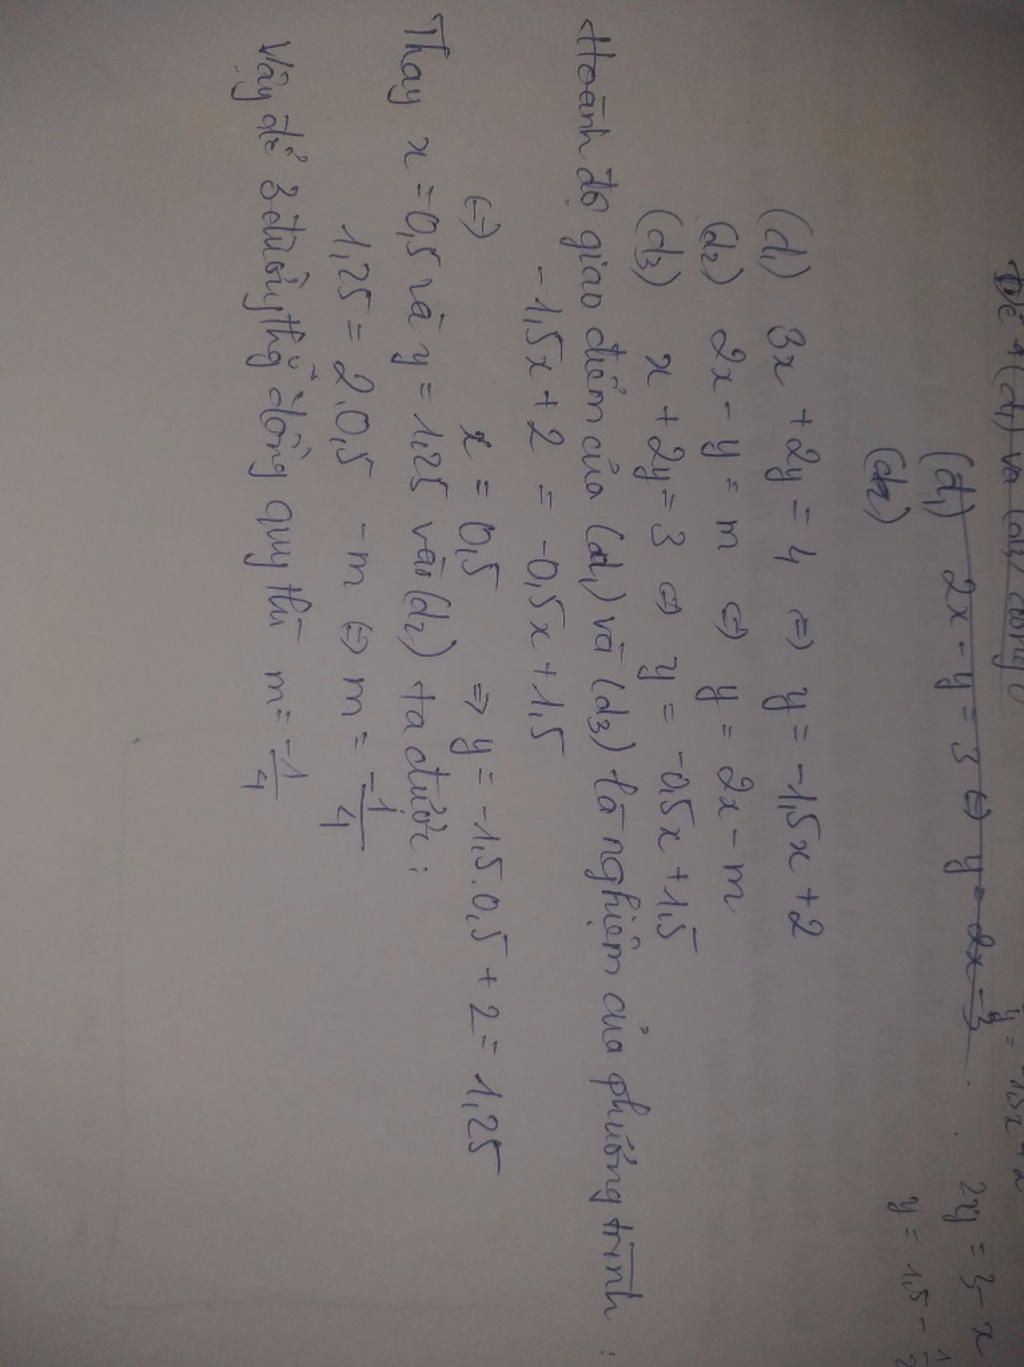 Để 4 (d1) và (d3)
(d1) 2x - y = 3 ⇔ y = 2x - 3
(d2)
2y = 3 - x
y = 1,5 -
(d1) 3x + 2y = 4 ⇔ y = -1,5x + 2
(d2) 2x - y = m ⇔ y = 2x - m
(d3) x + 2y = 3 ⇔ y = -0,5x + 1,5
Hoành độ giao điểm của (d1) và (d3) là nghiệm của phương trình :
-1,5x + 2 = -0,5x + 1,5
⇔ x = 0,5 ⇒ y = -1,5.0,5 + 2 = 1,25
Thay x = 0,5 và y = 1,25 vào (d2) ta được :
1,25 = 2.0,5 - m ⇔ m = -1/4
Vậy để 3 đường thg đồng quy thì m = -1/4